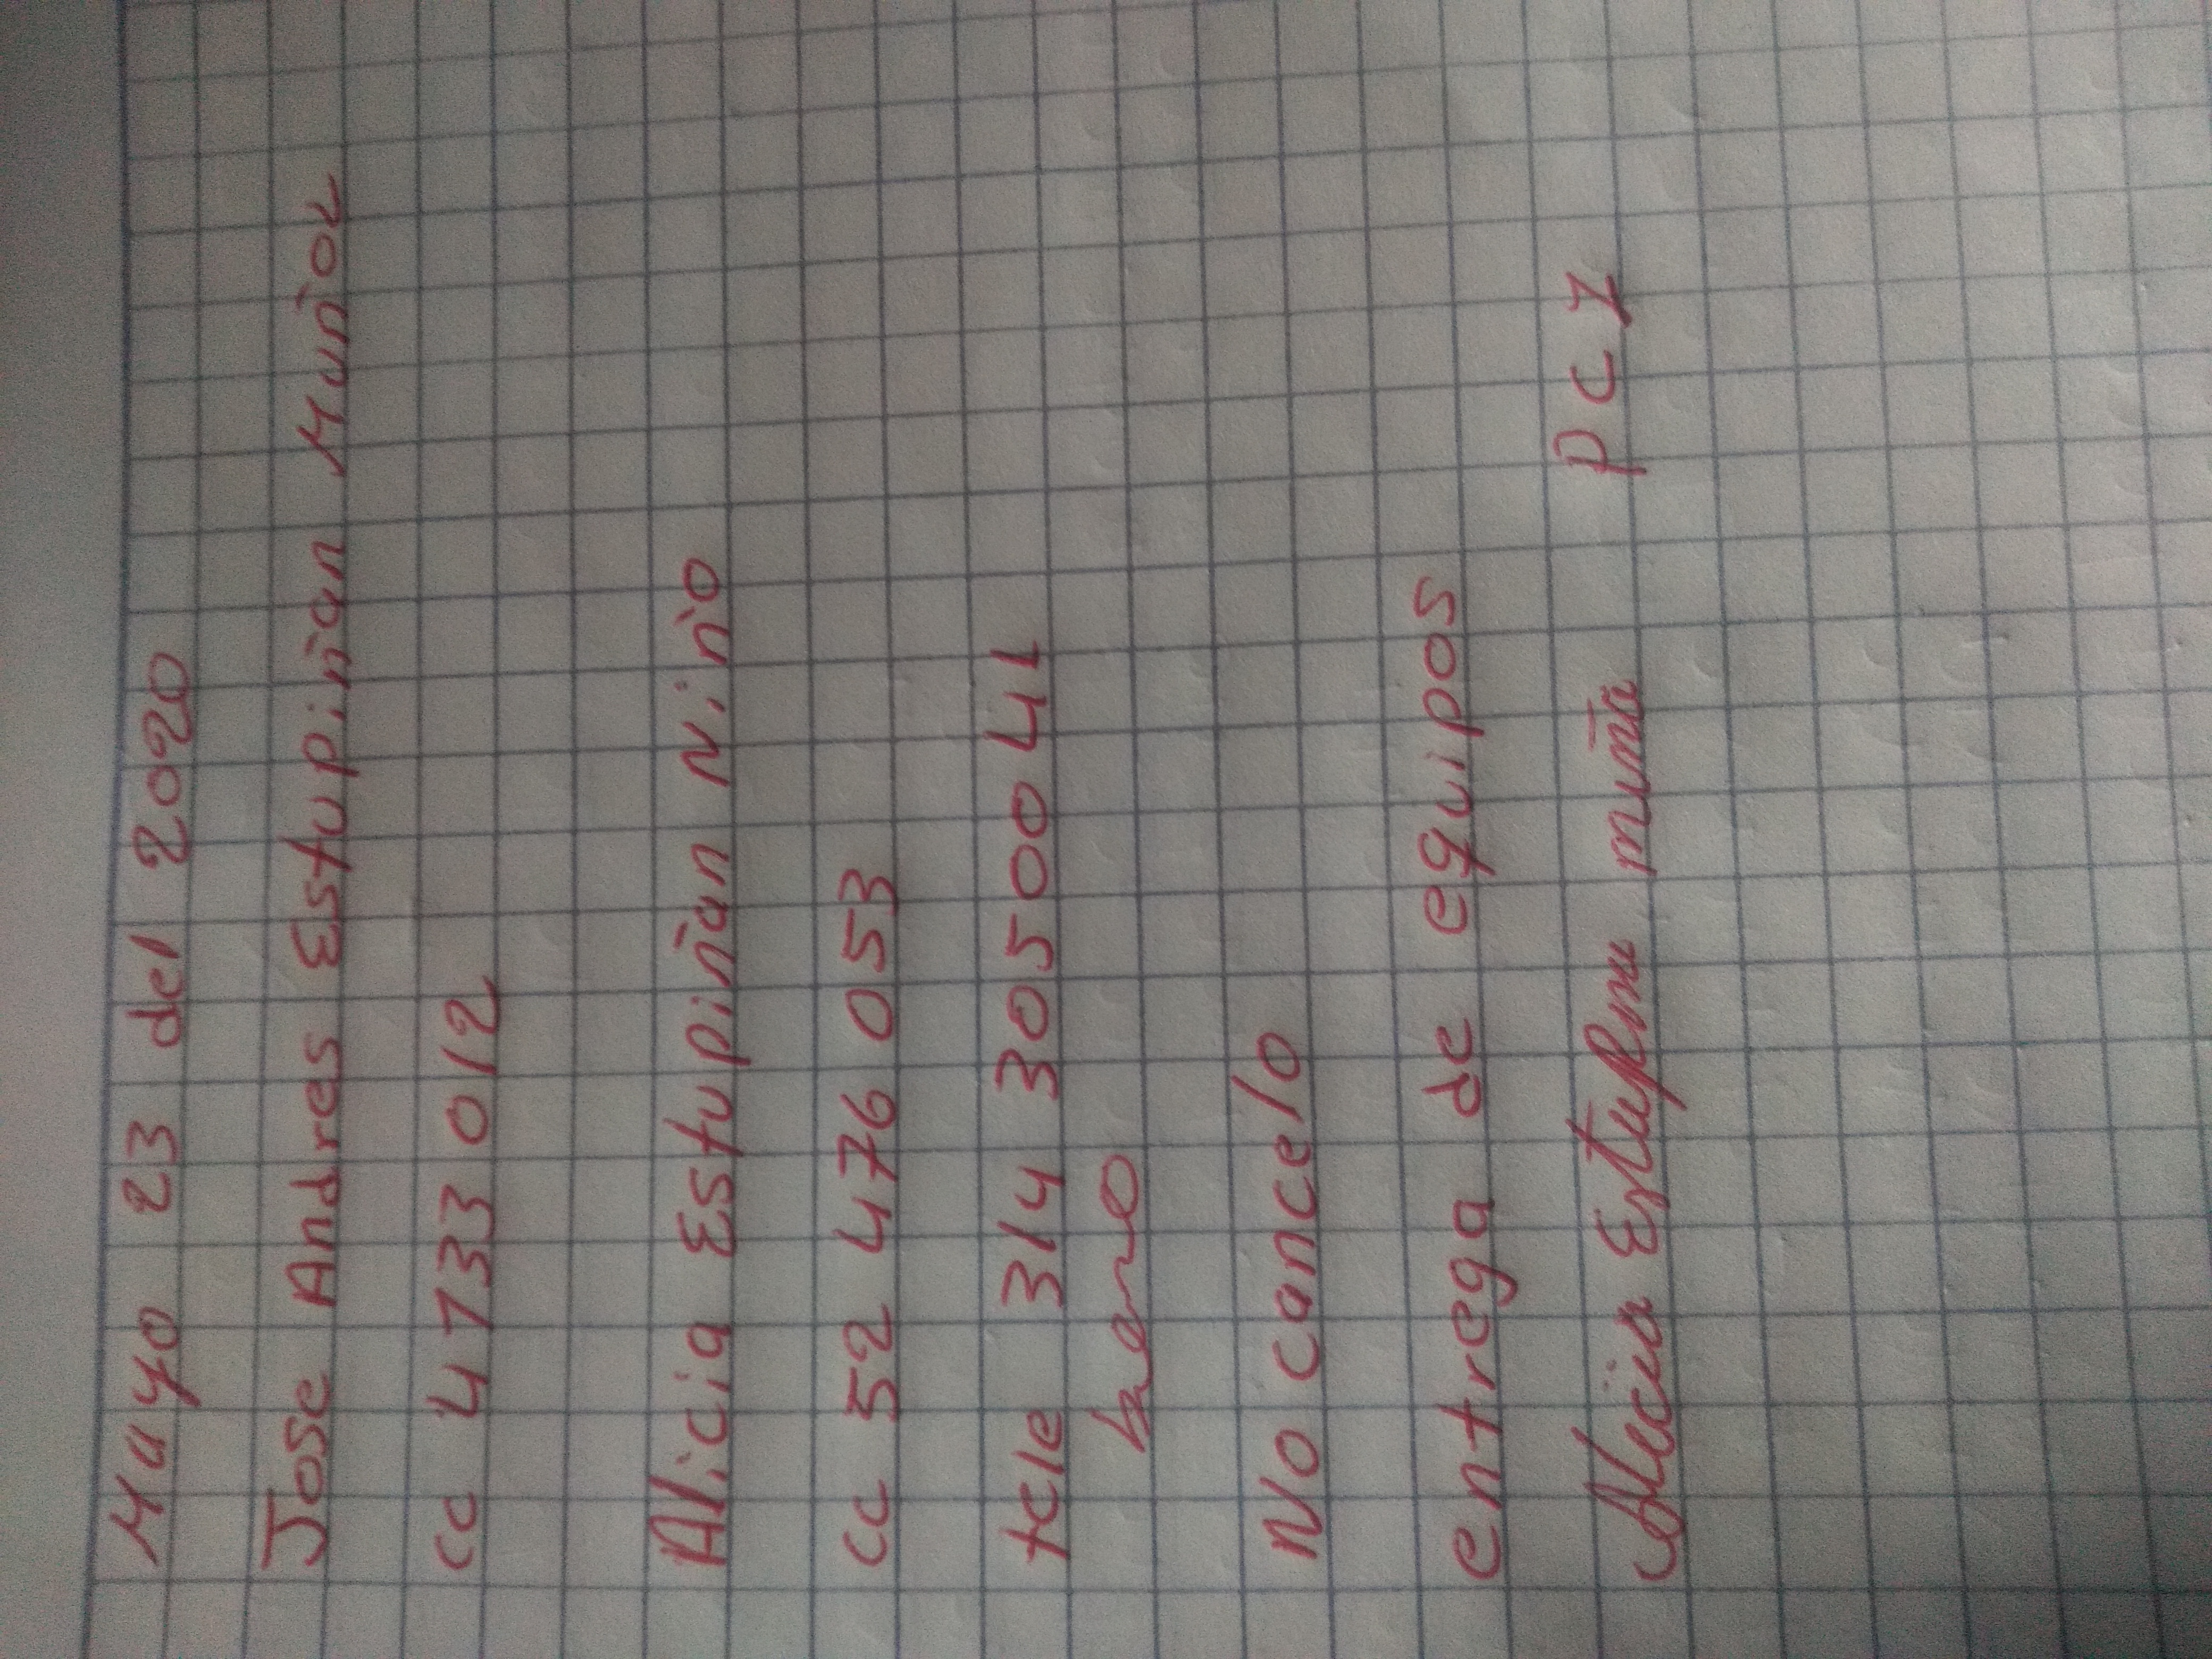 Mayo 23 del 2020
Jose Andres Estupiñan Muñoz
cc 4 133 012
Alicia Estupiñan Niño
cc 52 476 053
tele 314 3055 00 41
No cancelo
entrega de equipos
Alicia P C 1